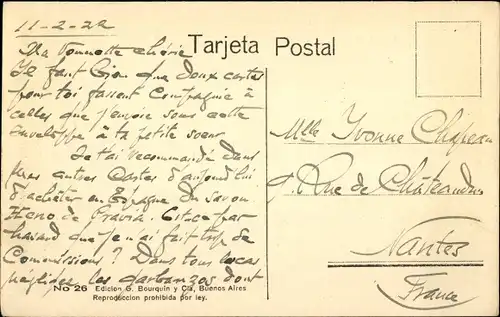 11-2-22
Ma Vonnette chérie
Tarjeta Postal
Il faut bien que deux cartes
pour toi fassent Compagnie à
celles que j'envoie sous cette
enveloppe à ta petite soeur
Je t'ai recommandé dans
mes autres Cartes d'aujourd'hui
d'acheter en Espagne du Savon
Heno de Pravia. Est-ce par
hasard que je n'ai fait trop de
Commissions ? Dans tous les cas
négliges les garbanzos dont
Mlle Yvonne Chapeau
9. Rue de Châteaudun
Nantes
France
No 26 Edicion G. Bourquin y Cia, Buenos Aires
Reproduccion prohibida por ley.